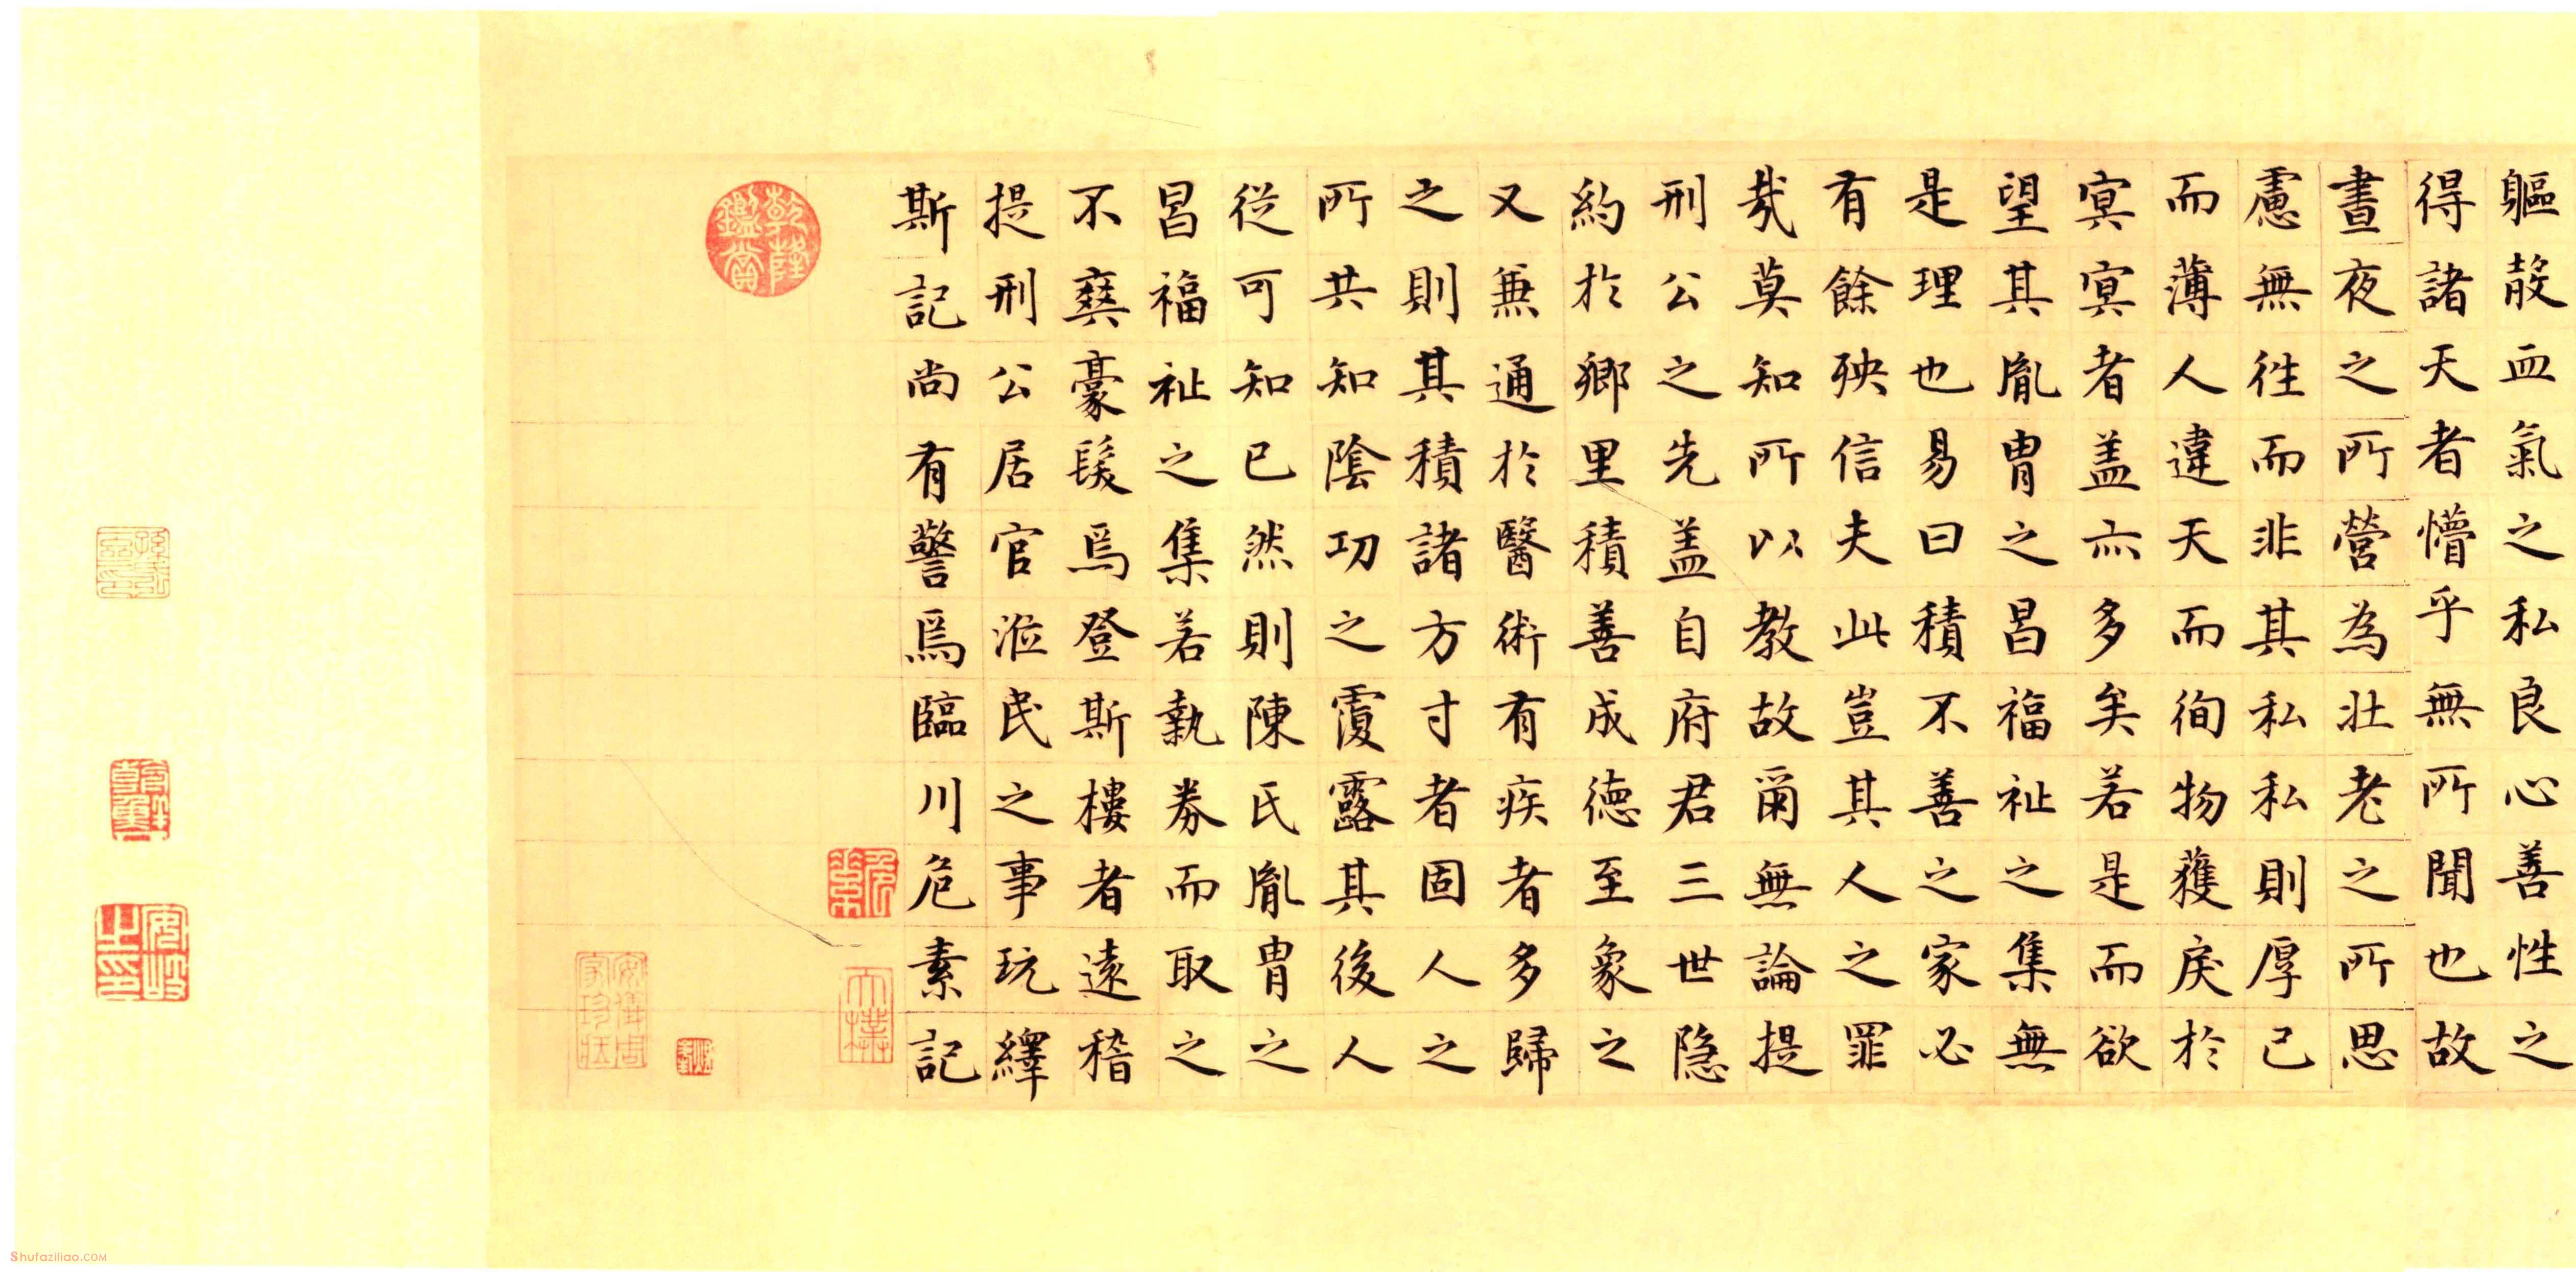 軀殼血氣之私良心善性之
得諸天者懵乎無所聞也故
晝夜之所營為壯老之所思
慮無徃而非其私私則厚己
而薄人違天而徇物獲戾於
冥冥者盖亦多矣若是而欲
望其胤胄之昌福祉之集無
是理也易曰積不善之家必
有餘殃信夫此豈其人之罪
㢤莫知所以教故爾無論提
刑公之先盖自府君三世隐
約於鄉里積善成德至象之
又兼通於醫術有疾者多歸
之則其積諸方寸者固人之
所共知陰功之覆露其後人
従可知已然則陳氏胤胄之
昌福祉之集若執券而取之
不爽豪髮焉登斯樓者遠稽
提刑公居官涖民之事玩繹
斯記尚有警焉臨川危素記
乾隆鑑賞
安儀周家珍藏
Shufaziliao.com